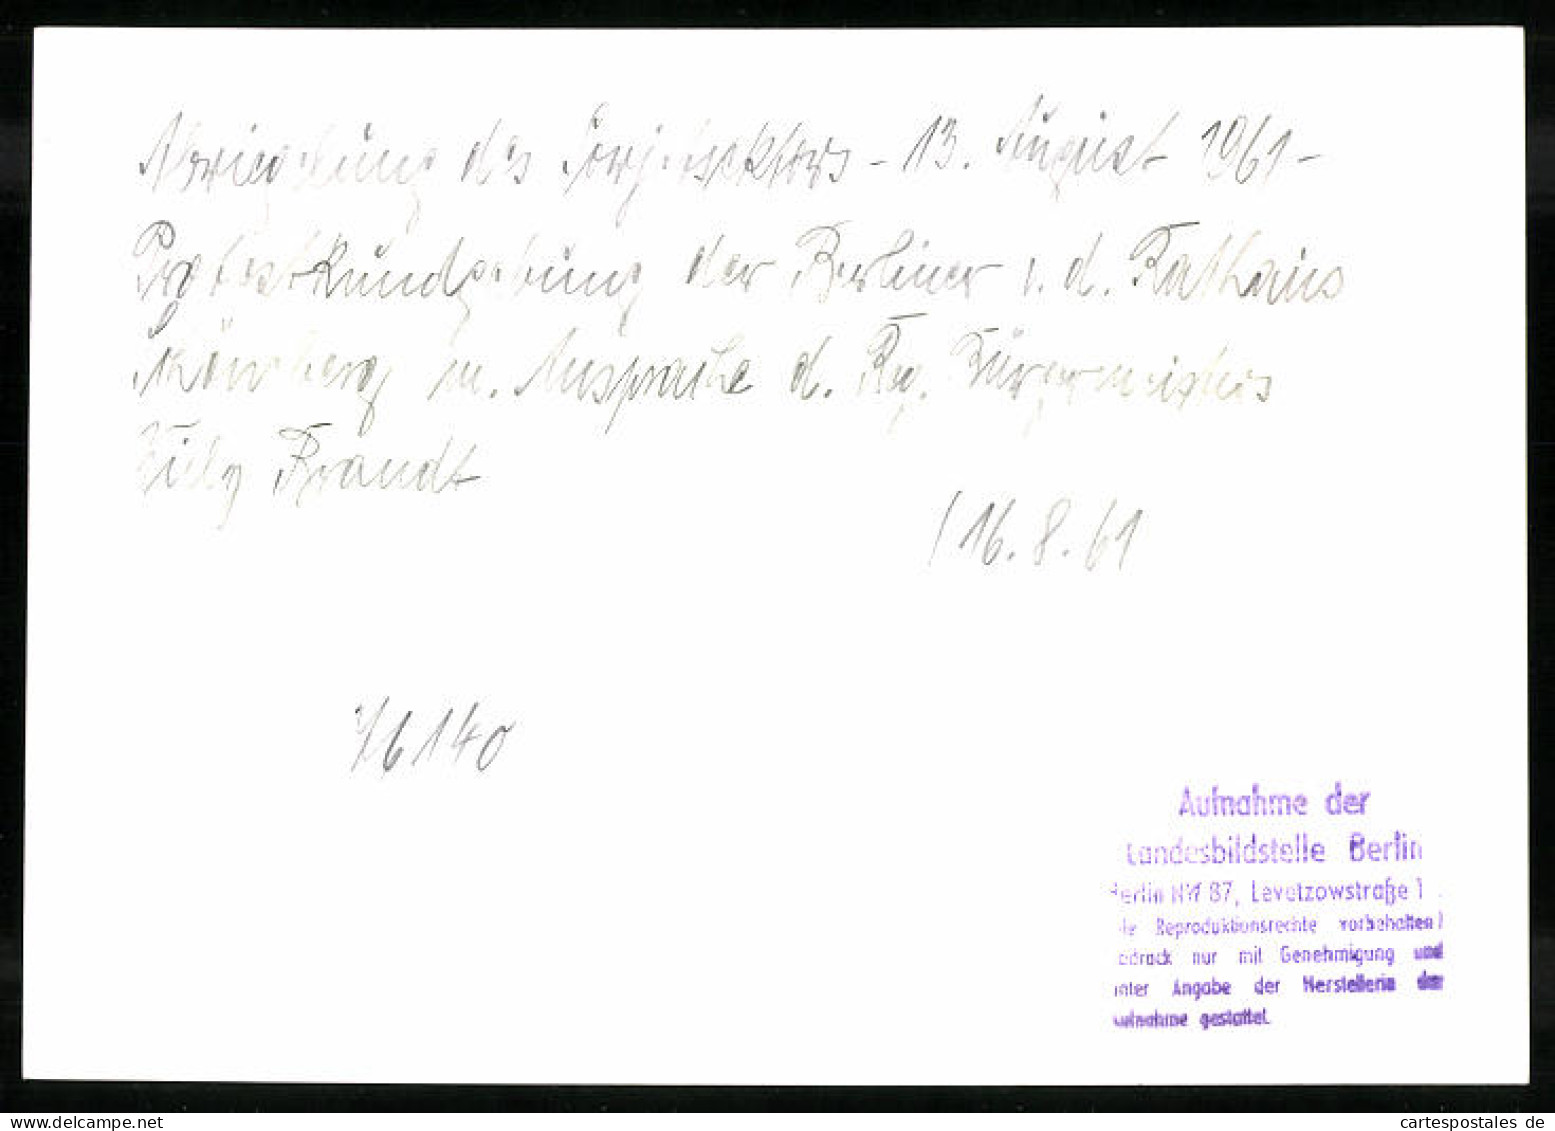 Abriegelung des Sowjetsektors - 13. August 1961 -
Protestkundgebung der Berliner v. d. Rathaus
Schöneberg m. Ansprache d. Reg. Bürgermeisters
Willy Brandt
/ 16. 8. 61
76140
Aufnahme der
Landesbildstelle Berlin
Berlin NW 87, Levetzowstraße 1
Reproduktionsrechte vorbehalten!
nur mit Genehmigung und
unter Angabe der Herstellerin der
Aufnahme gestattet.
My-public-void.com
cartespostales de